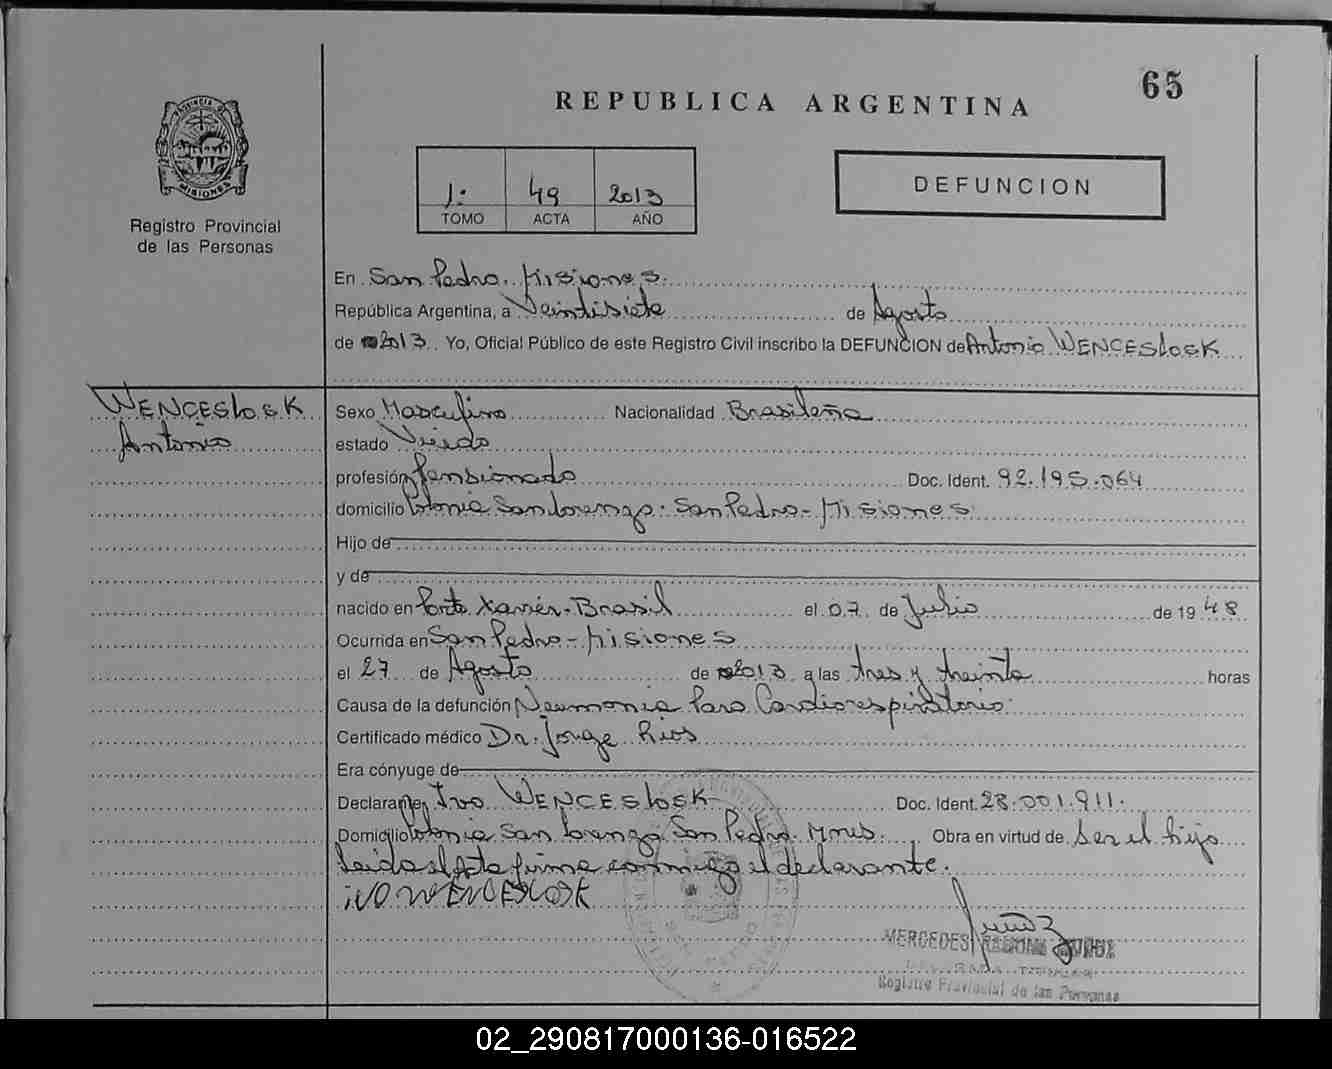 65
REPUBLICA ARGENTINA
PROVINCIA DE
MISIONES
Registro Provincial
de las Personas
1: 49 2013
TOMO ACTA AÑO
DEFUNCION
En San Pedro. Misiones.
República Argentina, a Veintisiete de Agosto
de 2013 Yo, Oficial Público de este Registro Civil inscribo la DEFUNCION de Antonio WENCESLOSK
WENCESLOSK
Antonio
Sexo Masculino Nacionalidad Brasileña
estado Viudo
profesión Pensionado Doc. Ident. 92.195.064
domicilio Colonia San Lorenzo. San Pedro - Misiones
Hijo de
y de
nacido en Porto Xavier - Brasil el 07 de Julio de 1948
Ocurrida en San Pedro - Misiones
el 27 de Agosto de 2013 a las tres y treinta horas
Causa de la defunción Neumonia Paro Cardiorespiratorio
Certificado médico Dr. Jorge Rios
Era cónyuge de
Declarante Ivo WENCESLOSK Doc. Ident. 28.001.911.
Domicilio Colonia San Lorenzo San Pedro. Mnes. Obra en virtud de Ser el hijo
Leida el Acta firma conmigo el declarante.
iVO WENCESLOSK
MERCEDES RAMONA MUÑOZ
Registro Provincial de las Personas
02_290817000136-016522